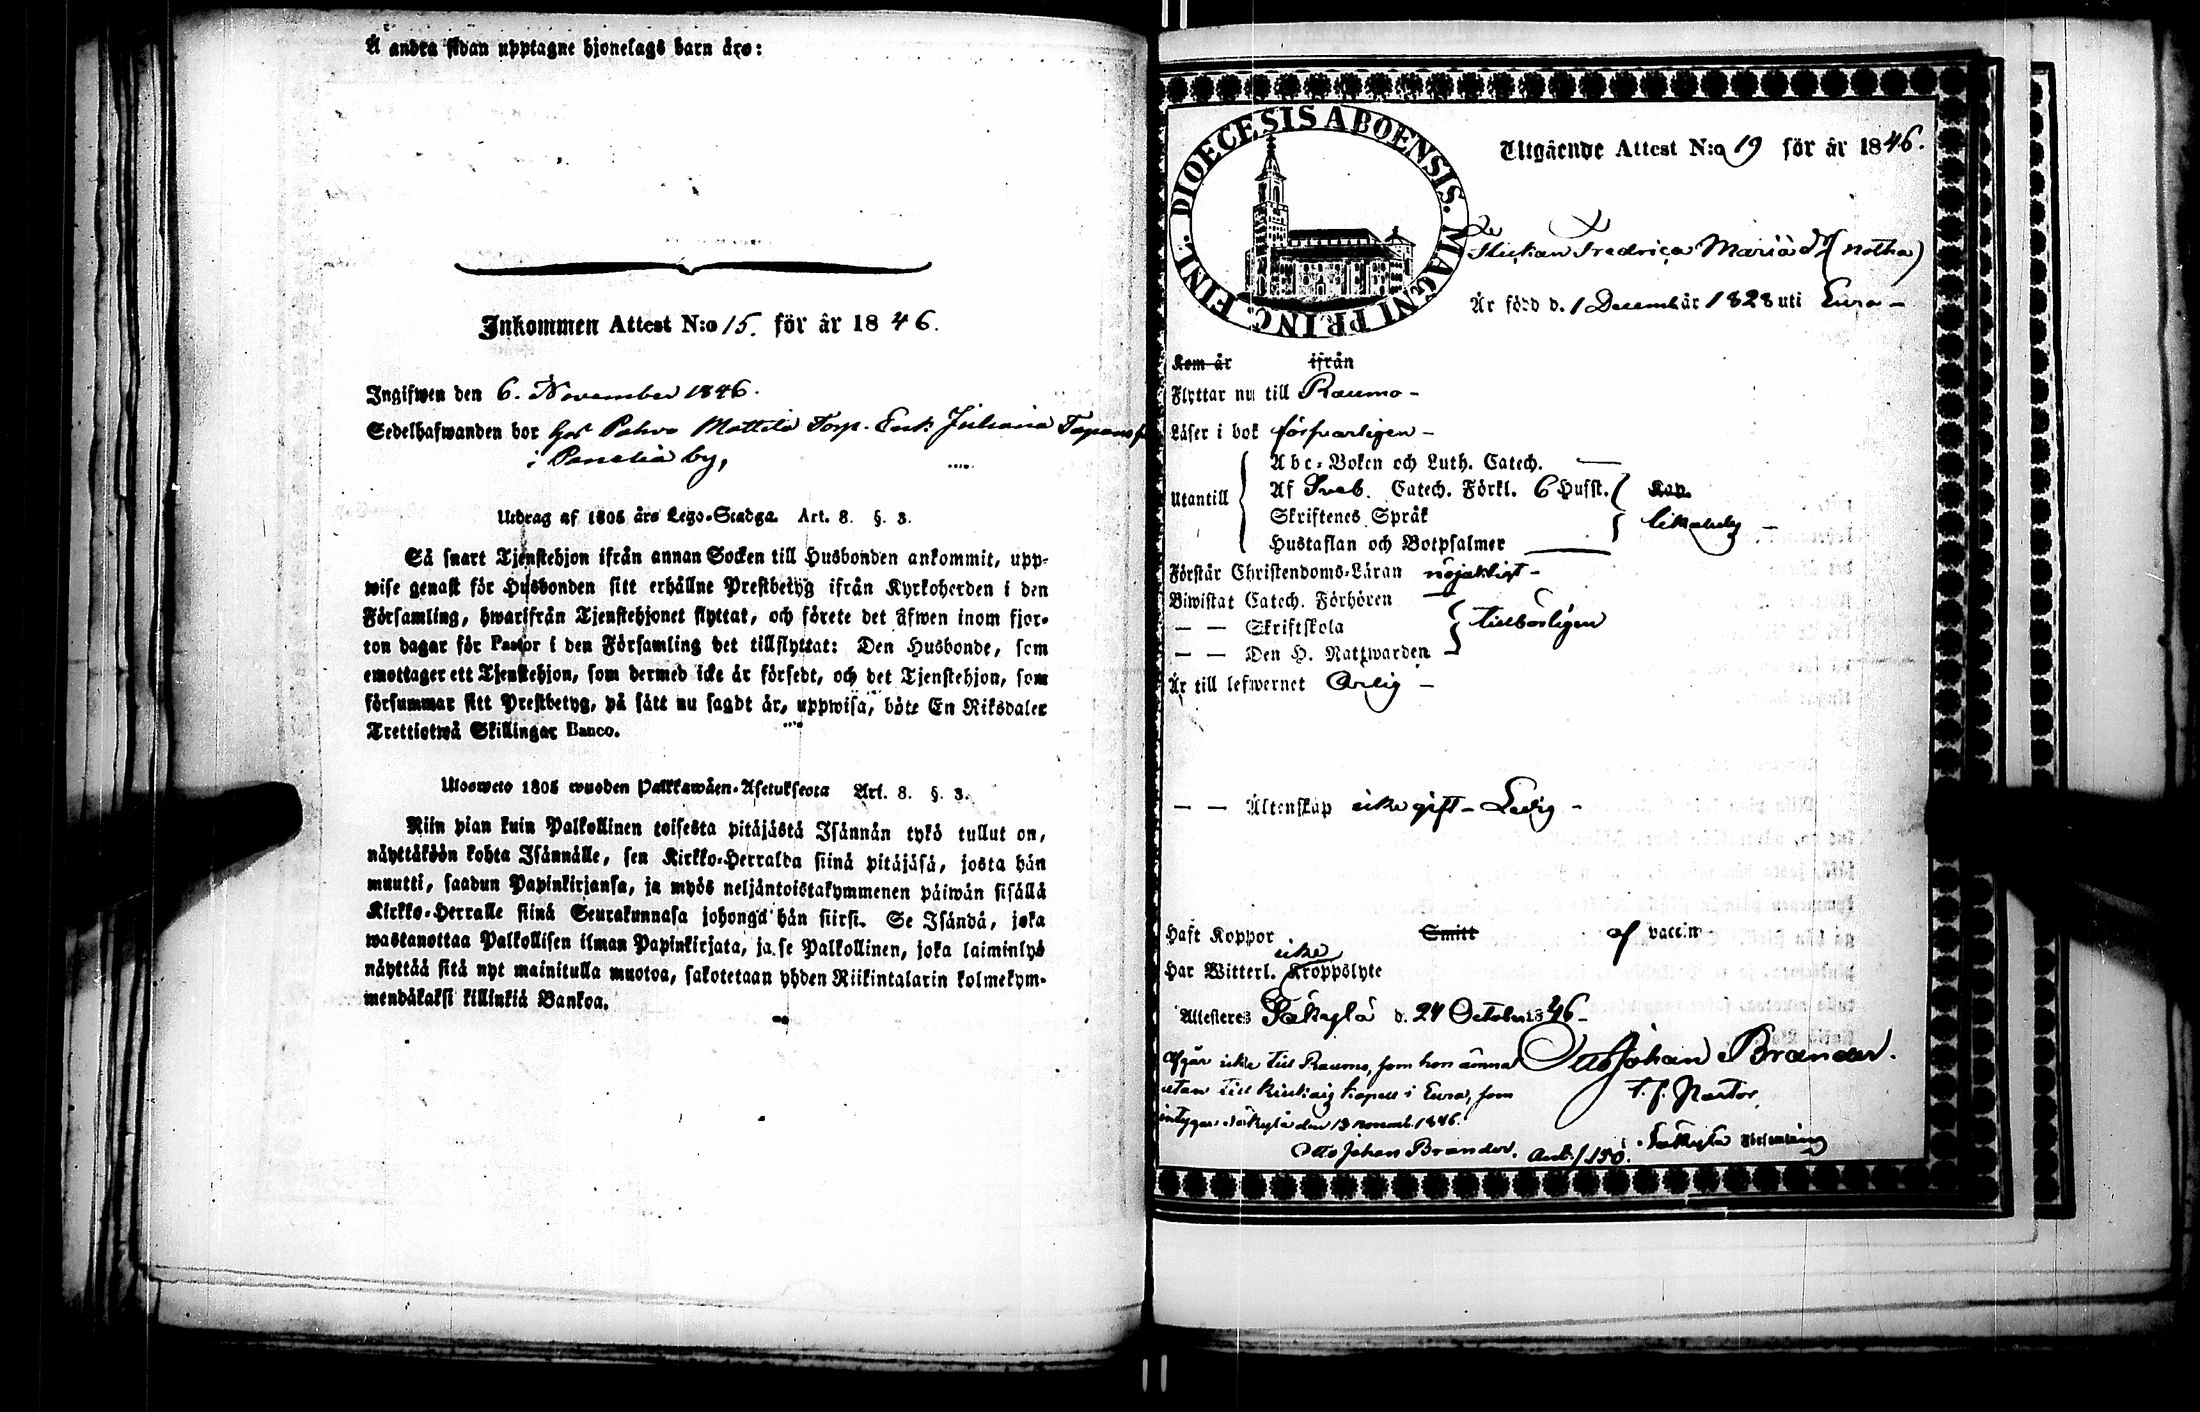 Å andra sidan upptagne hjonelags barn äro:
Inkommen Attest N:o 15. för år 1846.
Ingifwen den 6. November 1846.
Sedelhafwanden bor hos Pahvo Mattila Torp. Enk. Juliana
i Panelia by,
Utdrag af 1805 års Lego-Stadga. Art. 8. §. 3.
Så snart Tjenstehjon ifrån annan Socken till Husbonden ankommit, upp-
wise genast för Husbonden sitt erhållne Prestbetyg ifrån Kyrkoherden i den
Församling, hwarifrån Tjenstehjonet flyttat, och förete det äfwen inom fjor-
ton dagar för Pastor i den Församling det tillflyttat: Den Husbonde, som
emottager ett Tjenstehjon, som dermed icke är försedt, och det Tjenstehjon, som
försummar sitt Prestbetyg, på sätt nu sagdt är, uppwisa, böte En Riksdaler
Trettiotwå Skillingar Banco.
Ulosweto 1805 wuoden Palkkawäen-Asetuksesta Art. 8. §. 3.
Niin pian kuin Palkollinen toisesta pitäjästä Isännän tykö tullut on,
näyttäköön kohta Isännälle, sen Kirkko-Herralda siinä pitäjäsä, josta hän
muutti, saadun Papinkirjansa, ja myös neljäntoistakymmenen päiwän sisällä
Kirkko-Herralle siinä Seurakunnasa johonga hän siirsi. Se Isändä, joka
wastanottaa Palkollisen ilman Papinkirjata, ja se Palkollinen, joka laiminlyö
näyttää sitä nyt mainitulla muotoa, sakotetaan yhden Riikintalarin kolmekym-
mendäkaksi killinkiä Bankoa.
DIOECESIS ABOENSIS. MAGNI PRINC. FINL.
Utgående Attest N:o 19 för år 1846.
Flickan Fredrica Maria (notha)
Är född d. 1 December 1828 uti Eura
Kom år ifrån
Flyttar nu till Raumo
Läser i bok försvarligen
Utantill
Abc-Boken och Luth. Catech.
Af Sveb. Catech. Förkl. 6 Hufst.
Skriftenes Språk
Hustaflan och Botpsalmer
Förstår Christendoms-Läran nöjaktigt
Biwistat Catech. Förhören
— — Skriftskola tillbörligen
— — Den H. Nattwarden
Är till lefwernet Ärlig
— — Äktenskap icke gift - Ledig
Haft Koppor Smitt af vaccin
Har Witterl. icke Kroppslyte
Attesteres Säkylä d. 24 October 1846
Otto Johan Brander.
t.f. Pastor,
Säkylä Församling
Afgår icke till Raumo, som hon ämnat
utan till Kiukais kapell i Eura, som
intygas Säkylä den 13 novemb. 1846.
Otto Johan Brander.